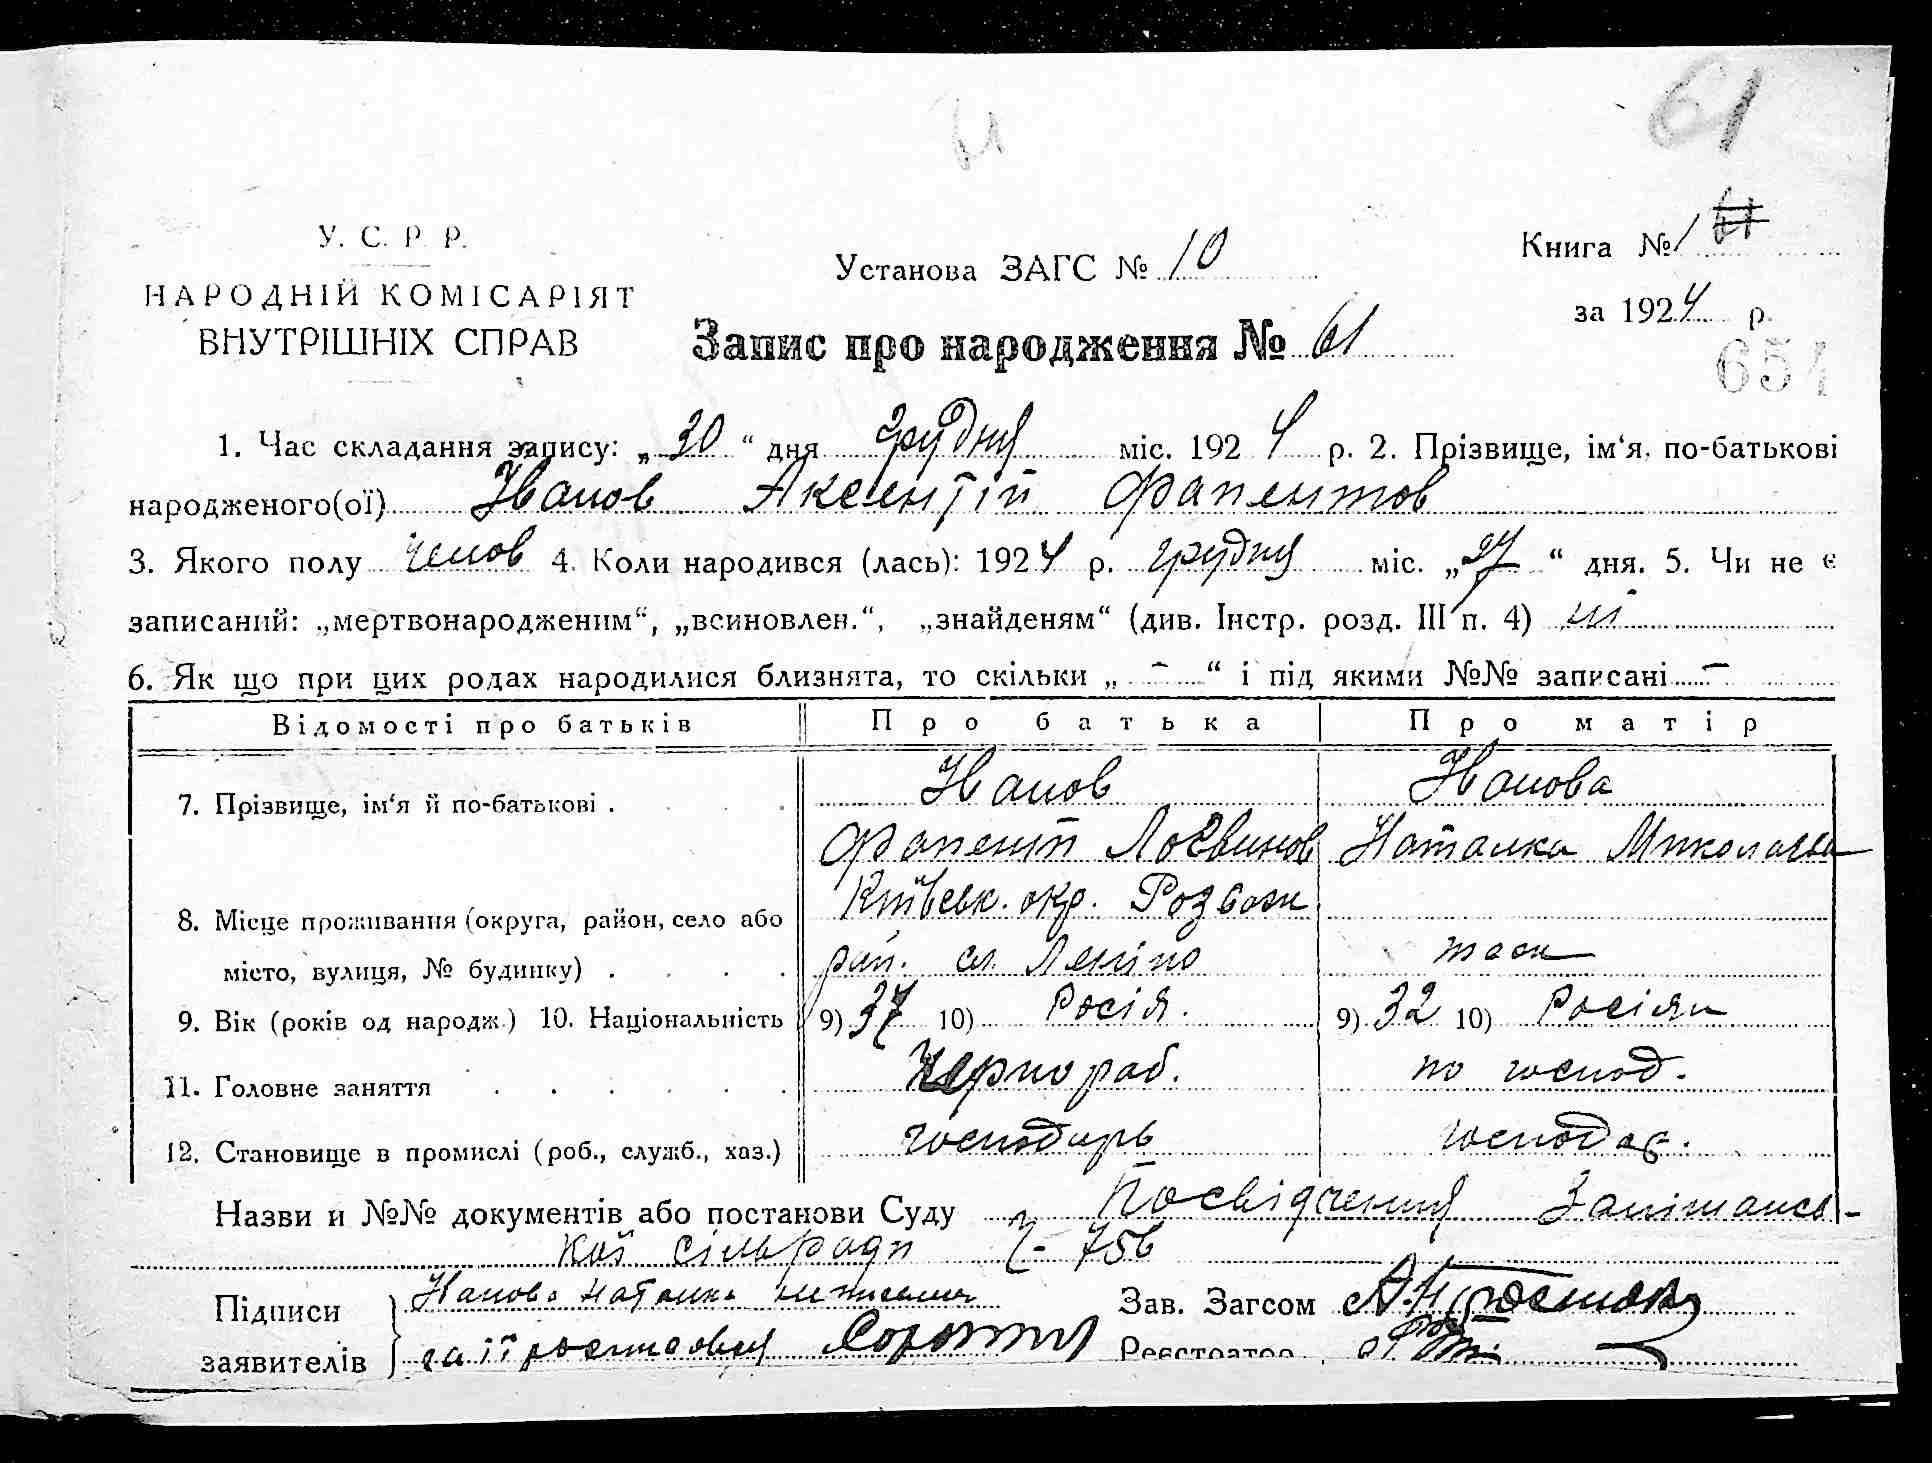 61
61
У. С. Р. Р.
НАРОДНІЙ КОМІСАРІЯТ
ВНУТРІШНІХ СПРАВ
Установа ЗАГС № 10
Книга № 1 61
за 1924 р.
Запис про народження № 61
654
1. Час складання запису: „30“ дня грудня міс. 1924 р. 2. Прізвище, ім‘я, по-батькові
народженого(ої) Іванов Аксентій Фапентов
3. Якого полу челов 4. Коли народився (лась): 1924 р. грудня міс. „27“ дня. 5. Чи не є
записаний: „мертвонародженим“, „всиновлен.“, „знайденям“ (див. Інстр. розд. III п. 4) ні
6. Як що при цих родах народилися близнята, то скільки „ - “ і під якими №№ записані -
Відомості про батьків Про батька Про матір
7. Прізвище, ім‘я й по-батькові . Іванов Іванова
Фапент Логвинов Наталка Миколаєва
8. Місце проживання (округа, район, село або Київськ. окр. Розваж.
місто, вулиця, № будинку) . рай. сл. Леніно тоже
9. Вік (років од народж.) 10. Національність 9) 37 10) Росія. 9) 32 10) Росіян
11. Головне заняття Чернораб. по господ.
12. Становище в промислі (роб., служб., хаз.) господарь господар.
Назви и №№ документів або постанови Суду Посвідчення
кої сільради 756
Підписи Іванова Наталка неписьмен
заявителів за її росписався
Зав. Загсом
Реєстратор